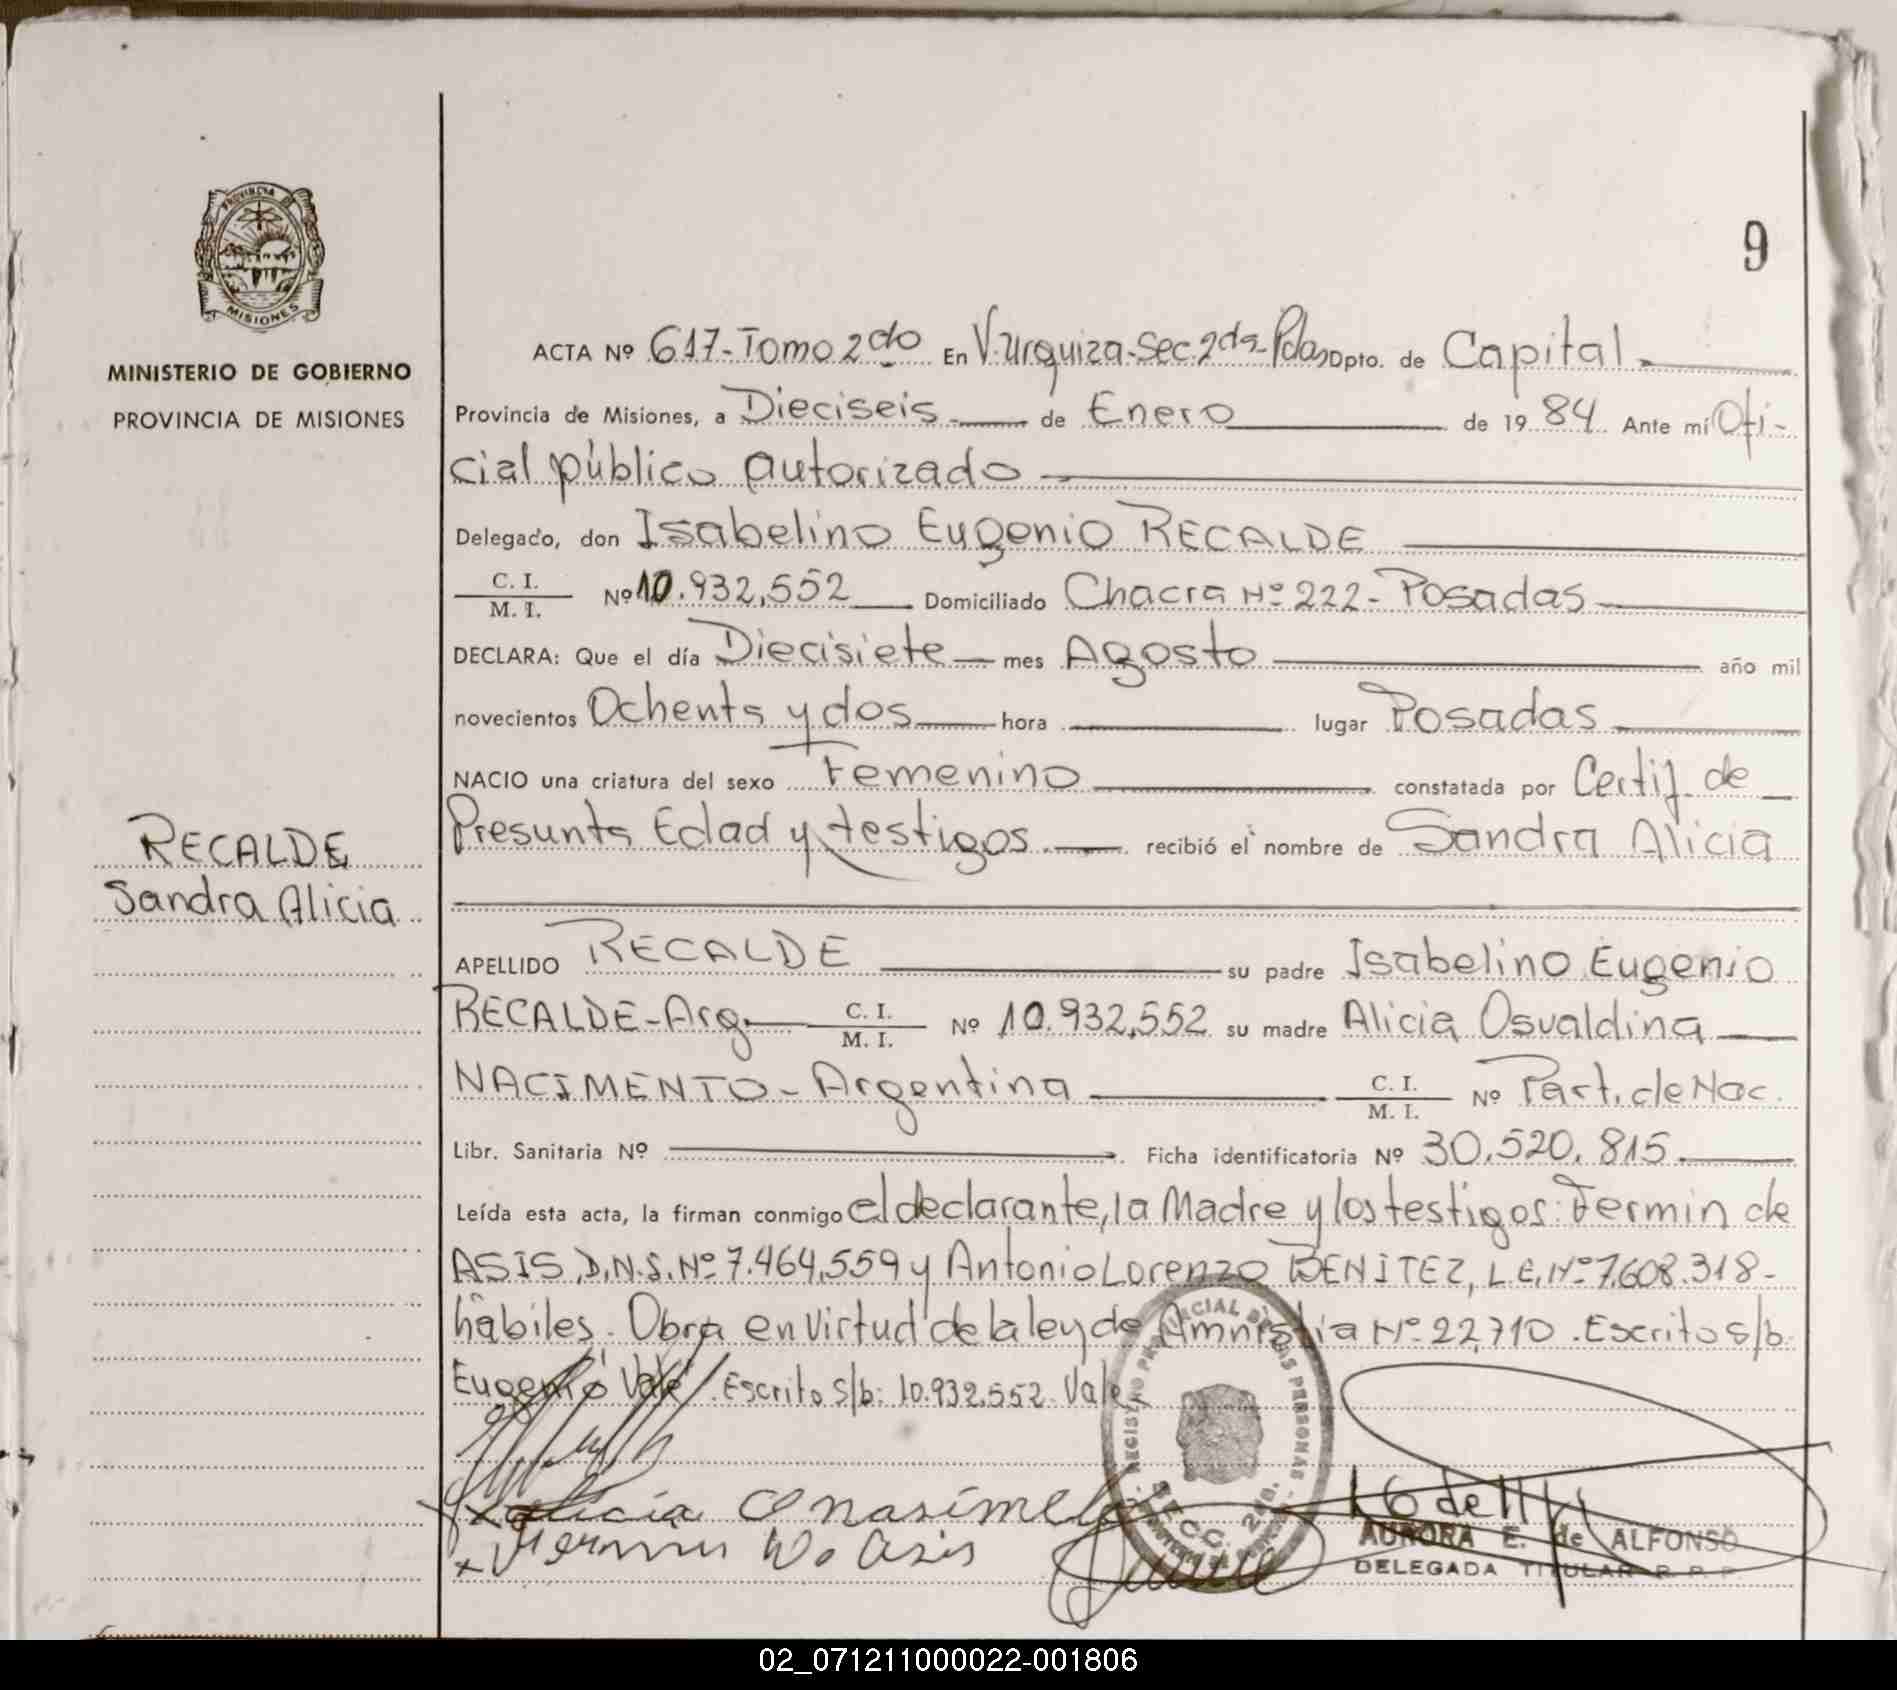 PROVINCIA DE
MISIONES
MINISTERIO DE GOBIERNO
PROVINCIA DE MISIONES
RECALDE
Sandra Alicia
9
ACTA Nº 617-Tomo 2do En V.Urquiza-Sec.2da-Pdas Dpto. de Capital
Provincia de Misiones, a Dieciseis de Enero de 1984 Ante mí Ofi-
cial público autorizado
Delegado, don Isabelino Eugenio RECALDE
C. I. / M. I. Nº 10.932,552 Domiciliado Chacra Nº 222- Posadas
DECLARA: Que el día Diecisiete mes Agosto año mil
novecientos Ochenta y dos hora lugar Posadas
NACIO una criatura del sexo Femenino constatada por Certif. de
Presunta Edad y testigos recibió el nombre de Sandra Alicia
APELLIDO RECALDE su padre Isabelino Eugenio
RECALDE-Arg. C. I. / M. I. Nº 10.932,552 su madre Alicia Osvaldina
NACIMENTO-Argentina C. I. / M. I. Nº Part. de Nac.
Libr. Sanitaria Nº Ficha identificatoria Nº 30.520.815
Leída esta acta, la firman conmigo el declarante, la Madre y los testigos: Fermin de
ASIS, D.N.I. Nº 7.464,559 y Antonio Lorenzo BENITEZ, L.E. Nº 7.608.318-
hábiles. Obra en virtud de la ley de Amnistia Nº 22,710. Escrito s/b:
Eugenio Vale. Escrito s/b: 10.932.552. Vale
REGISTRO PROVINCIAL DE LAS PERSONAS
SECC. 2da.
Alicia O nasimeto
Fermin De Asis
AURORA E. de ALFONSO
DELEGADA TITULAR R. P. P.
02_071211000022-001806